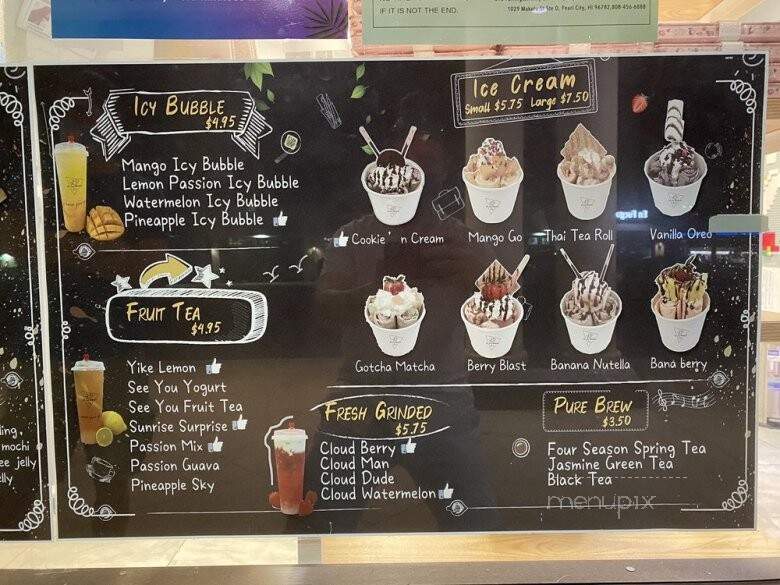 IF IT IS NOT THE END.
Pearl City, HI 96782, 808-456-6888
ICY BUBBLE
$4.95
Mango Icy Bubble
Lemon Passion Icy Bubble
Watermelon Icy Bubble
Pineapple Icy Bubble
Ice Cream
Small $5.75 Large $7.50
Cookie' n Cream
Mango Go
Thai Tea Roll
Vanilla Oreo
Gotcha Matcha
Berry Blast
Banana Nutella
Bana berry
FRUIT TEA
$4.95
Yike Lemon
See You Yogurt
See You Fruit Tea
Sunrise Surprise
Passion Mix
Passion Guava
Pineapple Sky
FRESH GRINDED
$5.75
Cloud Berry
Cloud Man
Cloud Dude
Cloud Watermelon
PURE BREW
$3.50
Four Season Spring Tea
Jasmine Green Tea
Black Tea
menupix
mochi
jelly